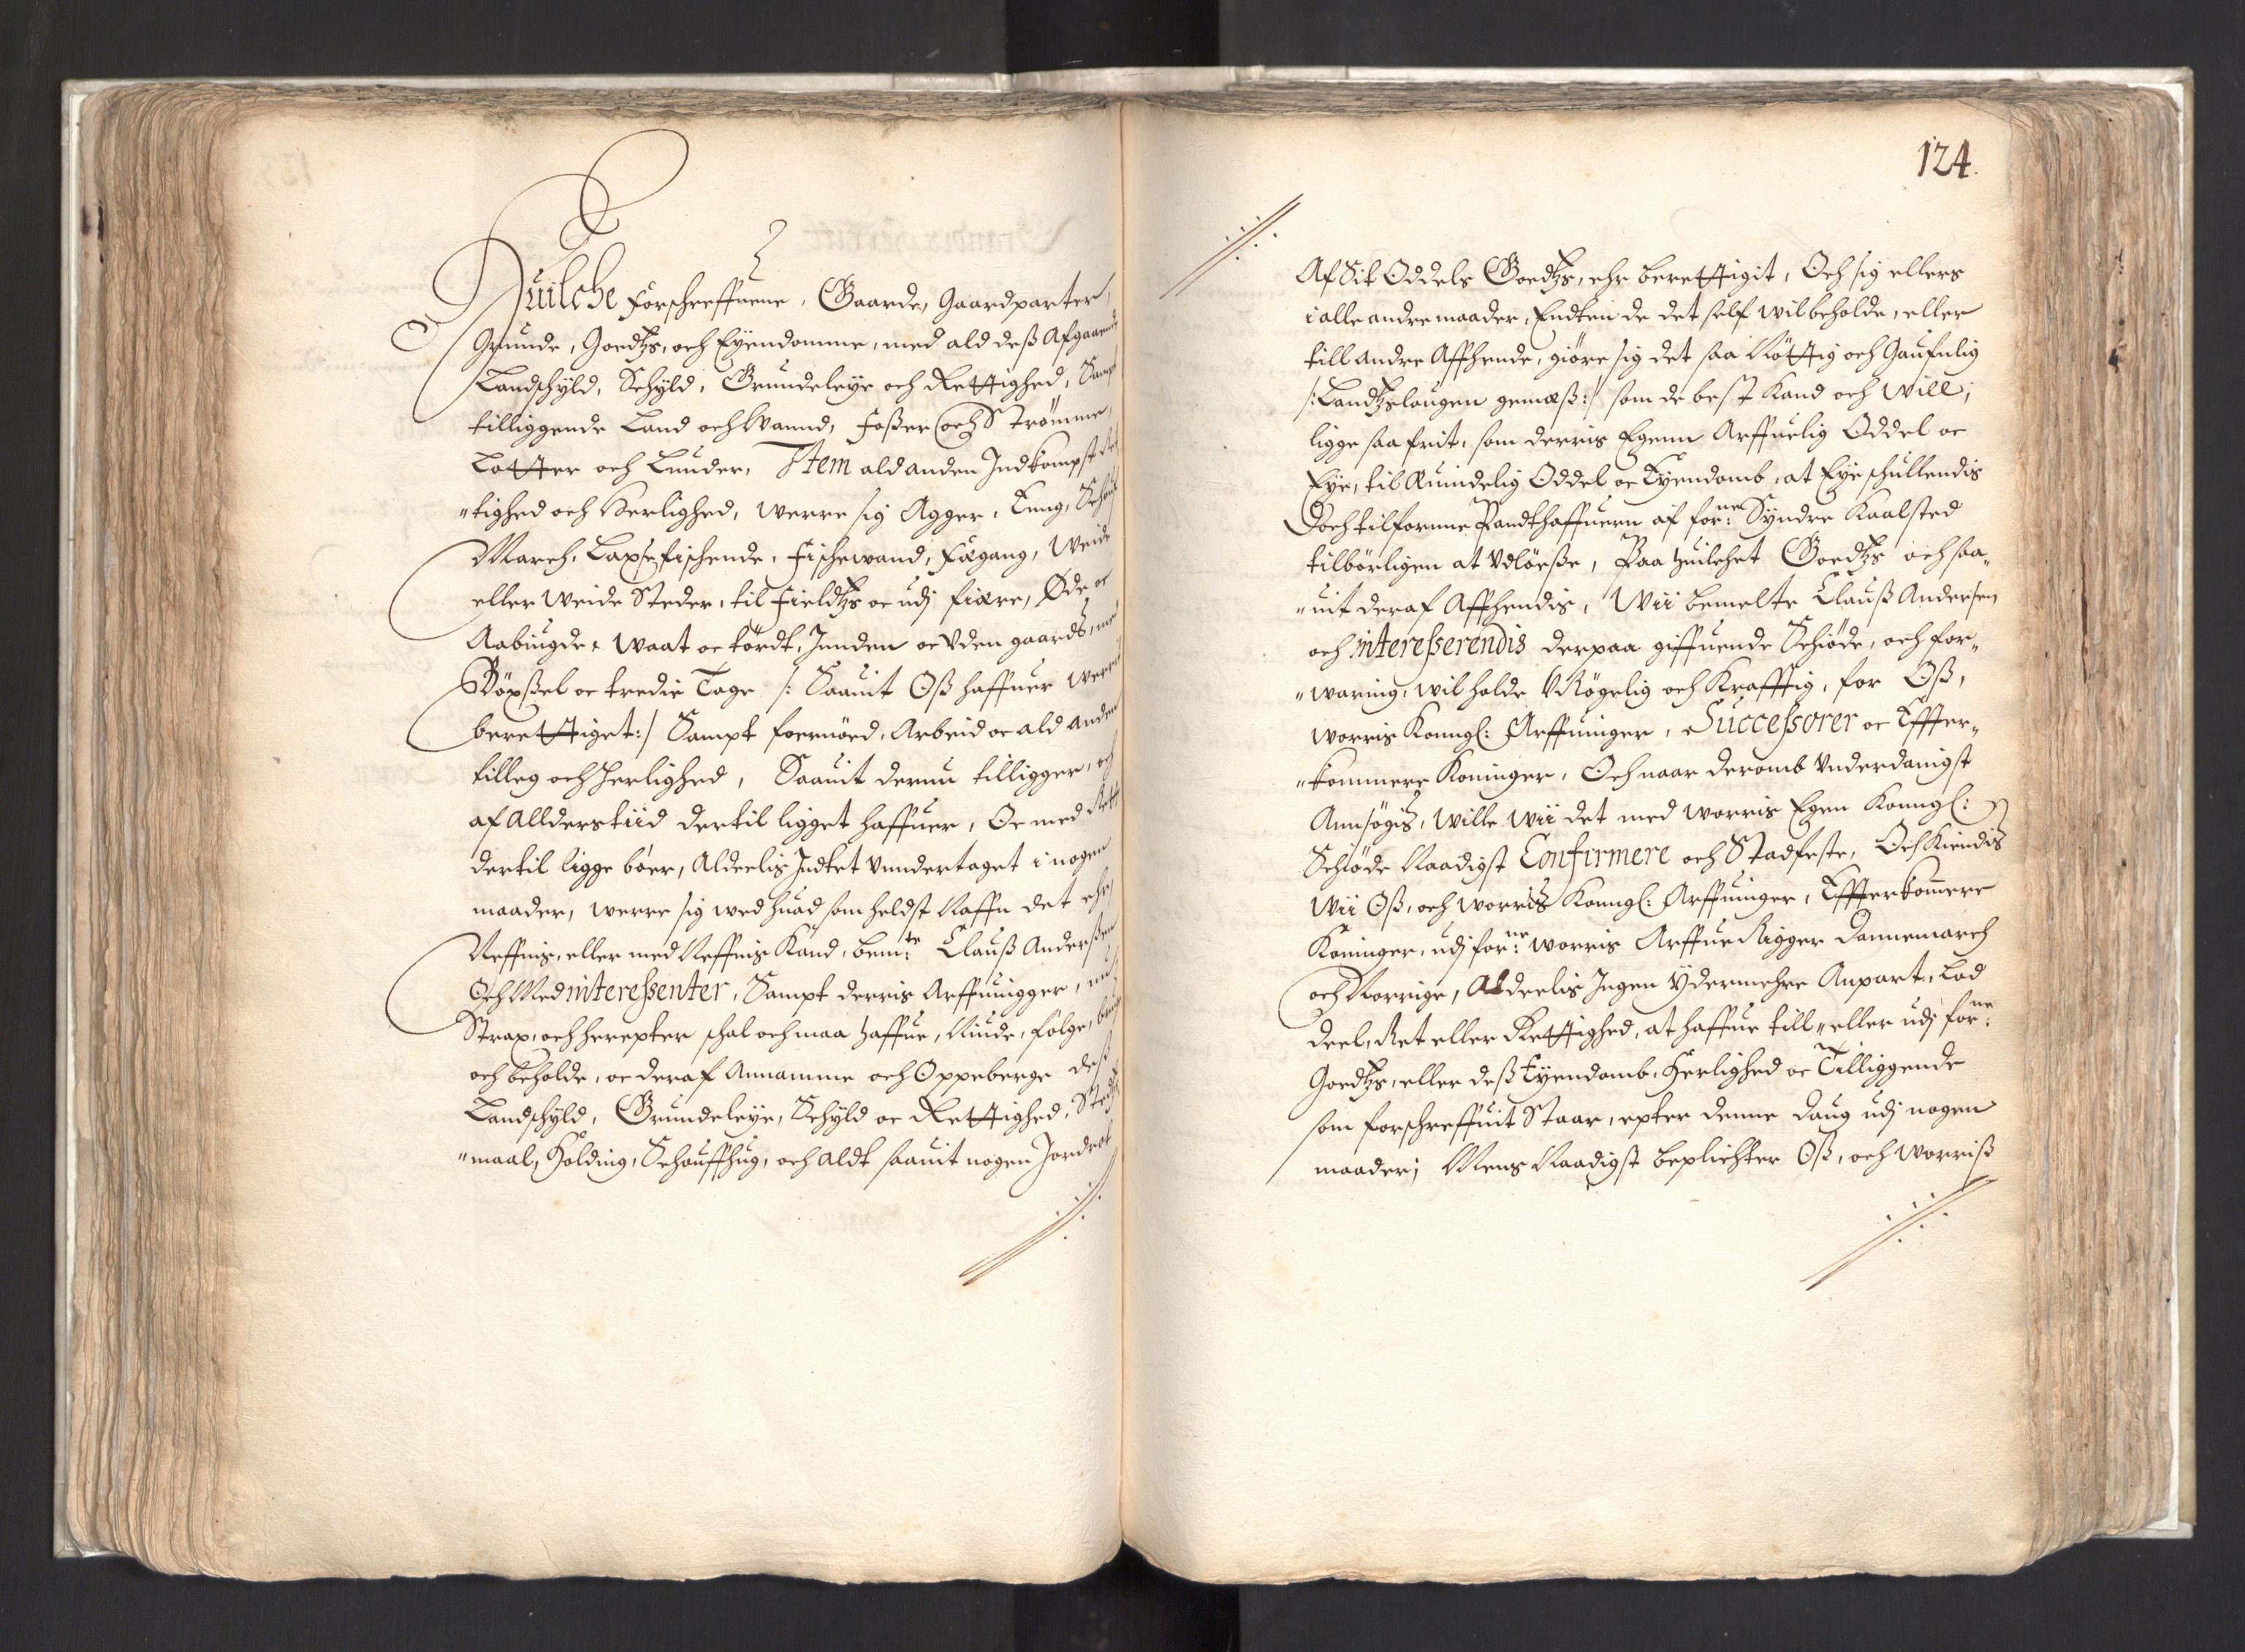 Huilche forschreffuene, Gaarde, Gaardparter,
Grunde, Goedtzs, och Eyendomme, med ald deß Afgaaende
Landschyld, Schyld, Grundeleye och Rettighed, Sampt
tilliggende Land och Wannd, Foßer och Strömme,
Lotter och Lunder, Item ald anden Indkompst
"tighed och Herlighed, werre sig Agger, Eung, Schouf
March, Laxsefischende, Fischewand, Fægang, Weide
eller Weide Steder, til Fieldtzs oc udj fiære, Øde oc
Aabiugde, waat oc tördt, Innden oc Uden gaards, med
Böxßel oc tredie Tage /: Saauit Oß haffuer werrit
berettiget:/ Sampt foernöed, Arbeid oc ald anden
tilleg och Herlighed, Saauit dernu tilligger, och
af Allderstiid dertil ligget haffuer, Oc med Rette
dertil ligge böer, Aldeelis Indtet unndertaget i nogen
maader, werre sig wed huad som heldst Naffn det ehr,
Neffnis, eller med Neffnis Kand, bem:te Clauß Anderßen
Och Med interessenter, Sampt derris Arffuingger, nu
Strax, och herepter schal och maa haffue, Niude, følge, bruge
och beholde, oc deraf Annamme och Oppeberge deß
Landschyld, Grundeleye, Schyld oc Rettighed, Stedtz
"maal, Holding, Schouffhug, och Aldt saauit nogen Jordrot
124.
Af Sit Oddels Goedtzs, ehr berettigit, Och sig ellers
i alle andre maader, Endten de det self wil beholde, eller
till andre Affhende, giöre sig det saa Nöttig och Gaufnlig
/:Landtzlougen gemæß:/ som de best Kand och will,
ligge saa frit, som derris Egenn Arffuelig Oddel oc
Eye, til Æuindelig Oddel oc Eyendomb, at Eye schullendis
Doch tilfornne Pandthaffuern af for:ne Syndre Kaalsted
tilbörligen at Udlöeße, Paa huilchet Goedtzs och saa
"uit deraf Affhendis, Wii bemelte Clauß Andersen
och interesserendis derpaa giffuende Schiöde, och for"
"waring, wil holde URögelig och Krafftig, for Oß,
worris Konngl: Arffuinger, Successorer oc Effter"
"kommere Koninger, Och naar deromb Underdanigst
Annsögis, Wille wii det med worris Egen Konngl:
Schiöde Naadigst Confirmere och Stadfeste, Och Kiendis
Wii Oß, och worris Konngl: Arffuinger, Effterkommere
Koninger, udj for:ne worris Arffue Rigger Dannemarch
och Norrige, Aldeelis Ingen Ydermehre Anpart, Lod
Deel, Ret eller Rettighed, at haffue till" eller udj for:ne
Goedtzs, eller deß Eyendomb, Herlighed oc Tilliggende
som forschreffuit Staar, epter denne Daug udj nogen
maader; Mens Naadigst beplichter Oß, och worriß